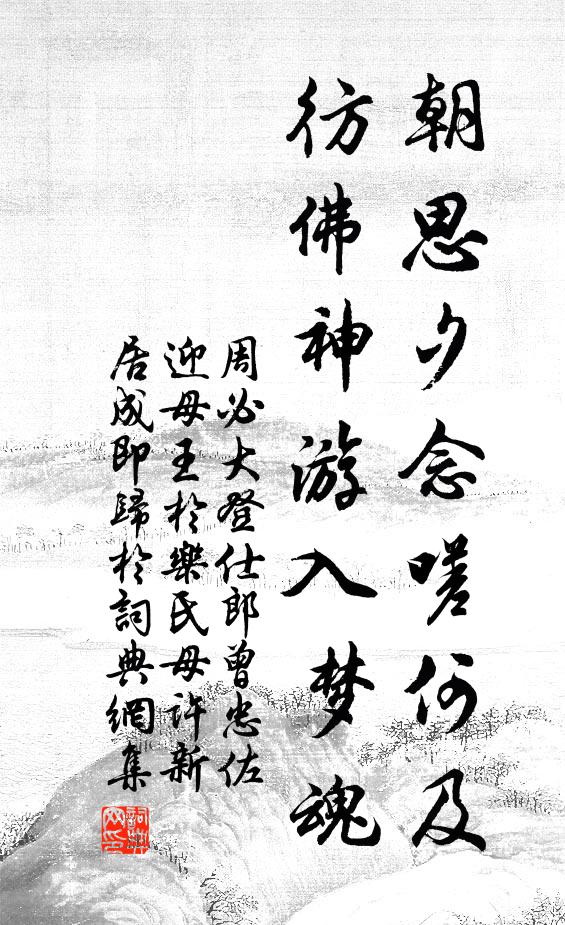 朝思夕念嗟何及
彷佛神游入梦魂
周必大登仕郎曾忠佐
迎母王於樂氏母许新
居成即歸於詞典網集